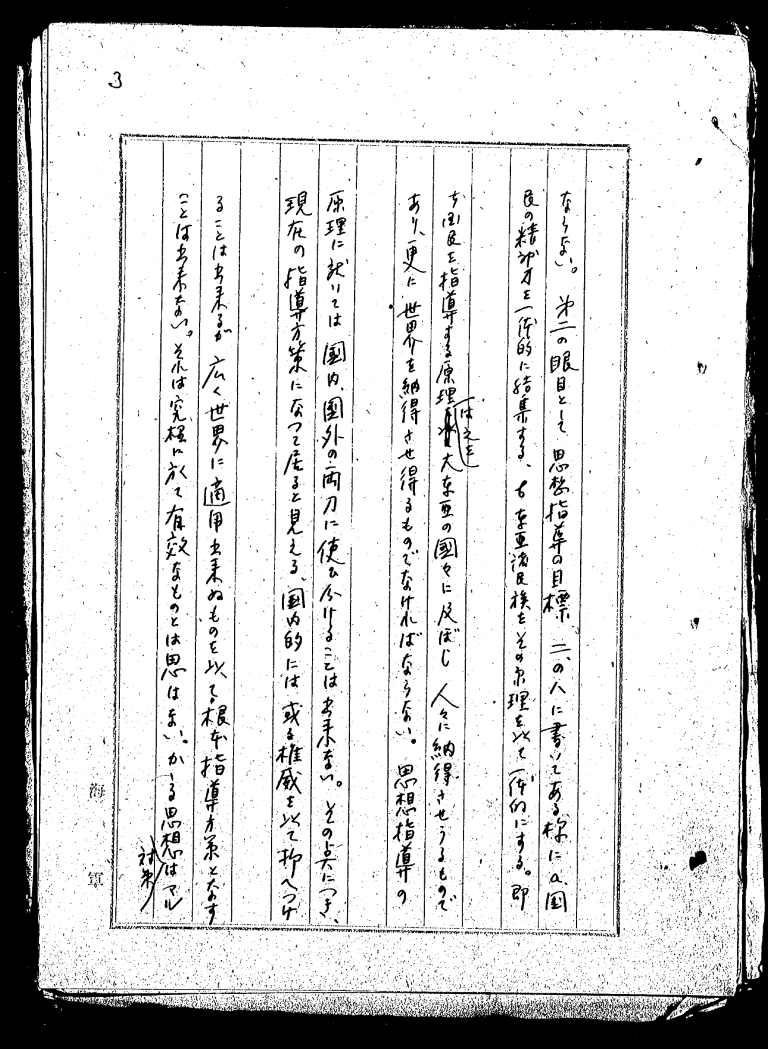 3
ならない。 第二の眼目として 思想指導の目標 二、の人に書いてある様に a、国
民の精神力を一体的に結集する、b 東亜諸民族をその原理を以て一体的にする。即
ち国民を指導する原理は之を大東亜の國々に及ぼし 人々に納得させうるもので
あり、更に世界を納得させ得るものでなければならない。 思想指導の
原理に就いては 國内、國外の両刀に使ひ分けることは出来ない。その点につき、
現在の指導方策になつて居ると見える、国内的には或る権威を以て抑へつけ
ることは出来るが 広く世界に適用出来ぬものを以て根本指導方策となす
ことは出来ない。それは究極に於て有效なものとは思はない。かゝる思想はマル
対策
海軍